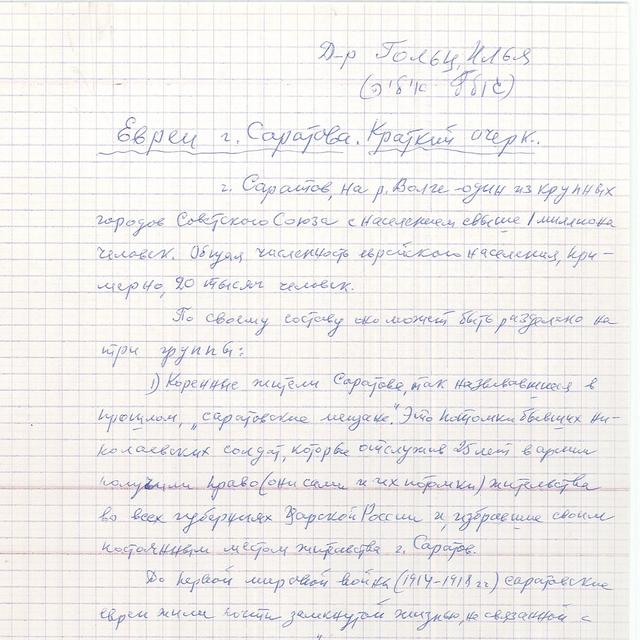 Д-р Гольц, Илья
Евреи г. Саратова. Краткий очерк.
г. Саратов, на р. Волге - один из крупных
городов Советского Союза с населением свыше 1 миллиона
человек. Общая численность еврейского населения, при-
мерно, 20 тысяч человек.
По своему составу оно может быть разделено на
три группы:
1) Коренные жители Саратова, так называвшиеся в
прошлом, "саратовские мещане." Это потомки бывших ни-
колаевских солдат, которые отслужив 25 лет в армии
получили право (они сами и их потомки) жительства
во всех губерниях Царской России и, избравшие своим
постоянным местом жительства г. Саратов.
До первой мировой войны (1914-1918 гг) саратовские
евреи жили почти замкнутой жизнью, не связанной с